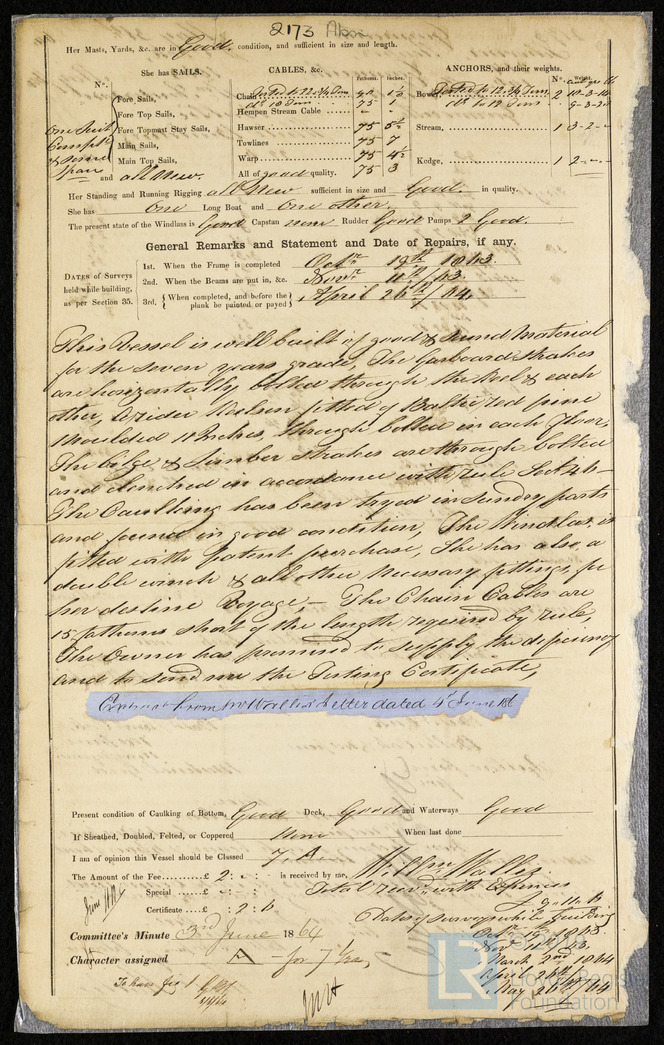 2173
Her Masts, Yards, &c. are in Good condition, and sufficient in size and length.
She has SAILS. CABLES, &c. Fathoms. Inches. ANCHORS, and their weights. Nº. Weight.
Nº.
Fore Sails, Chain Tested to 22 3/4 Tons 90 Bower, Tested to 12 Tons 2 10-3-16
Fore Top Sails, do 10 Tons 75 1 do to 12 Tons 9-3-20
Hempen Stream Cable
One Suit Fore Topmast Stay Sails, Hawser 75 5½ Stream, 1 3-2-
Complete Main Sails, Towlines 75 7
& some Main Top Sails, Warp 75 4½ Kedge, 1 2
spare and all New. All of good quality. 75 3
Her Standing and Running Rigging all New sufficient in size and Good in quality.
She has One Long Boat and One other.
The present state of the Windlass is Good Capstan none Rudder Good Pumps 2 Good.
General Remarks and Statement and Date of Repairs, if any.
DATES of Surveys held while building, as per Section 35.
1st. When the Frame is completed Octr 19th 1863.
2nd. When the Beams are put in, &c. Novr 11th /63.
3rd. When completed, and before the plank be painted or payed April 26th /64.
This Vessel is well built of good & sound Material
for the seven years grade, The Garboard strakes
are horizontally bolted through the Keel & each
other, A rider Keelson fitted of Baltic red pine
Moulded 11 Inches, through bolted in each floor,
The bilge & limber strakes are through bolted
and clenched in accordance with rule Sect 46
The Caulking has been tryed in sundry parts
and found in good condition, The Windlass is
fitted with patent purchase, She has also a
double winch & all other necessary fittings for
her destine Voyage, The Chain Cables are
15 fathoms short of the length required by rule,
The Owner has promised to supply the deficiency
and to send me the Testing Certificate,
Extract from Mr Waller's Letter dated 4th June 186
Present condition of Caulking of Bottom, Good Deck, Good and Waterways Good
If Sheathed, Doubled, Felted, or Coppered none When last done
I am of opinion this Vessel should be Classed 7. A.
The Amount of the Fee......£ 2 : - : - is received by me, Willm Waller
Special ......£ - : - : - Total recvd with Expences
Certificate ....£ : 2 : 6 £ 9.11.6
Dates of Surveys while building
Committee's Minute 3rd June 1864 Octr 19th 1863
Novr 11th 1863,
Character assigned A for 7 Yrs March 2nd 1864
April 26th /64
May 20th /64
LR
Lloyd's Register
Foundation